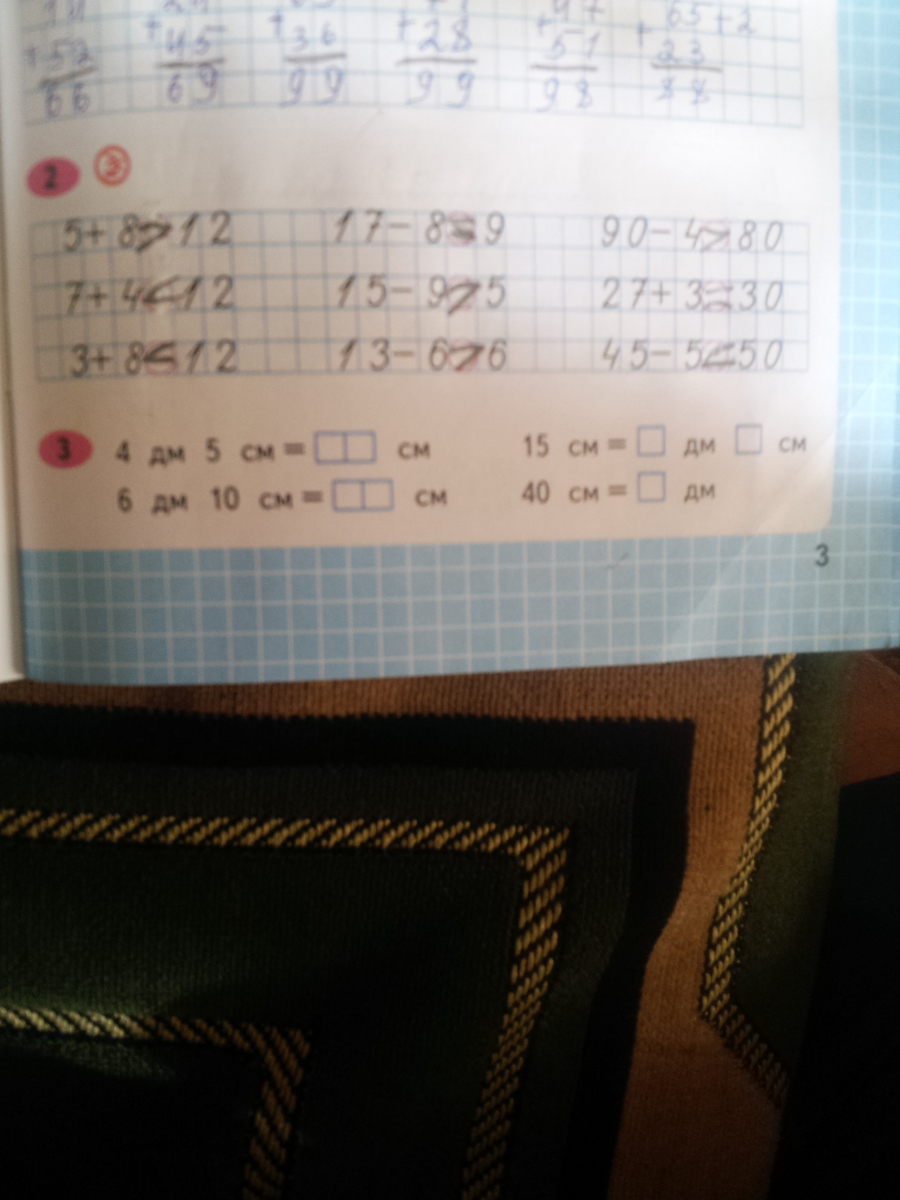 +52 +45 +36 +28 +51 +23
66 69 99 99 98 88
2
5+8>12 17-8=9 90-4>80
7+4<12 15-9>5 27+3=30
3+8<12 13-6>6 45-5<50
3 4 дм 5 см = см 15 см = дм см
6 дм 10 см = см 40 см = дм
3